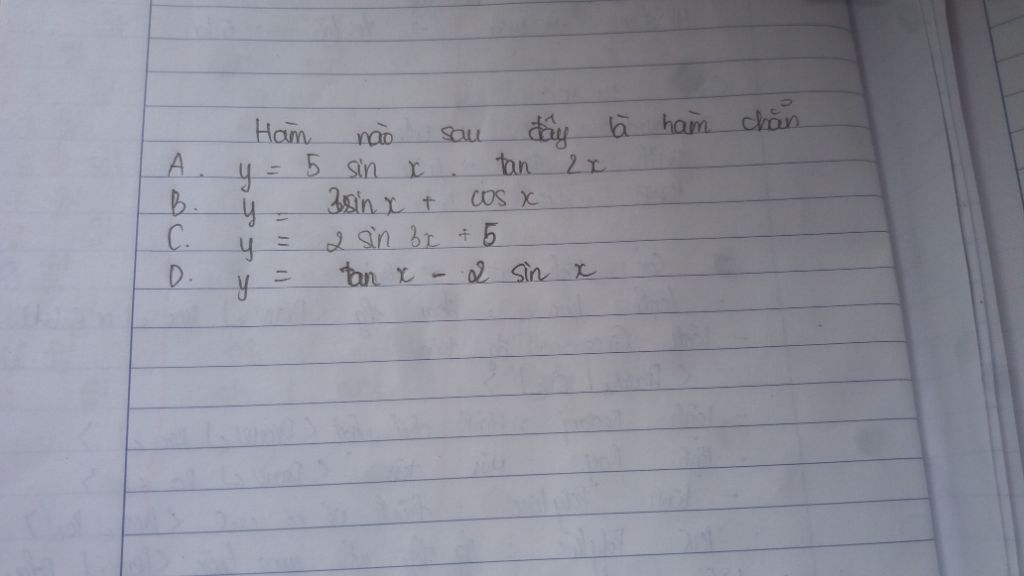 Hàm nào sau đây là hàm chẵn
A. y = 5 sin x . tan 2x
B. y = 3sin x + cos x
C. y = 2 sin 3x + 5
D. y = tan x - 2 sin x